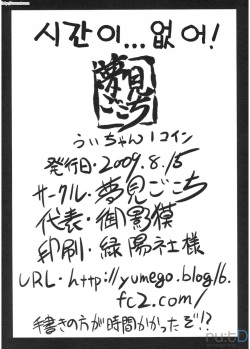 시간이...없어!
夢見ごこち
うぃちゃん1コイン
発行日・2009.8.15
サークル・夢見ごこち
代表・御影獏
印刷・緑陽社様
URL・http://yumego.blog16.
fc2.com/
手書きの方が時間かかったぞ!?